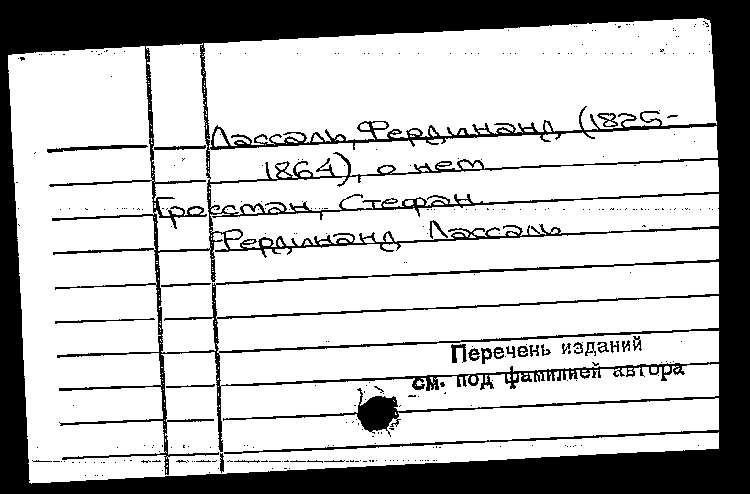 Лассаль, Фердинанд (1825-
1864), о нем
Гроссман, Стефан.
Фердинанд Лассаль
Перечень изданий
см. под фамилией автора